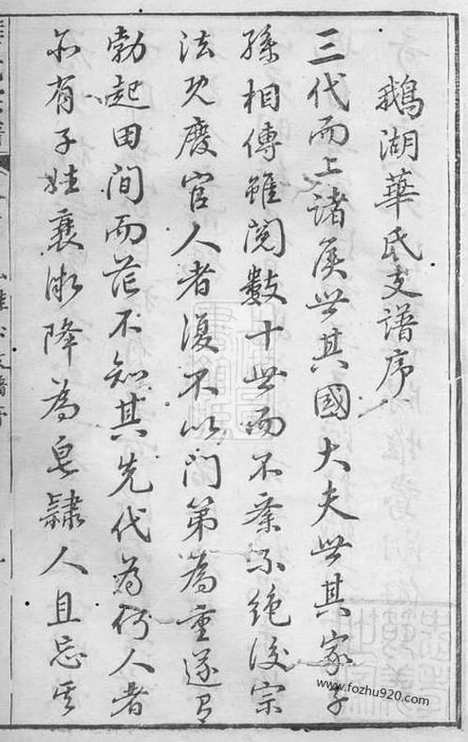 鵝湖華氏支譜序
三代而上諸侯世其國大夫世其家子
孫相傳雖閱數十世而不紊不絕後宗
法既廢官人者復不以門第為重遂有
勃起田間而茫不知其先代為何人者
亦有子姓衰微降為皂隸人且忘其
www.fozhu920.com